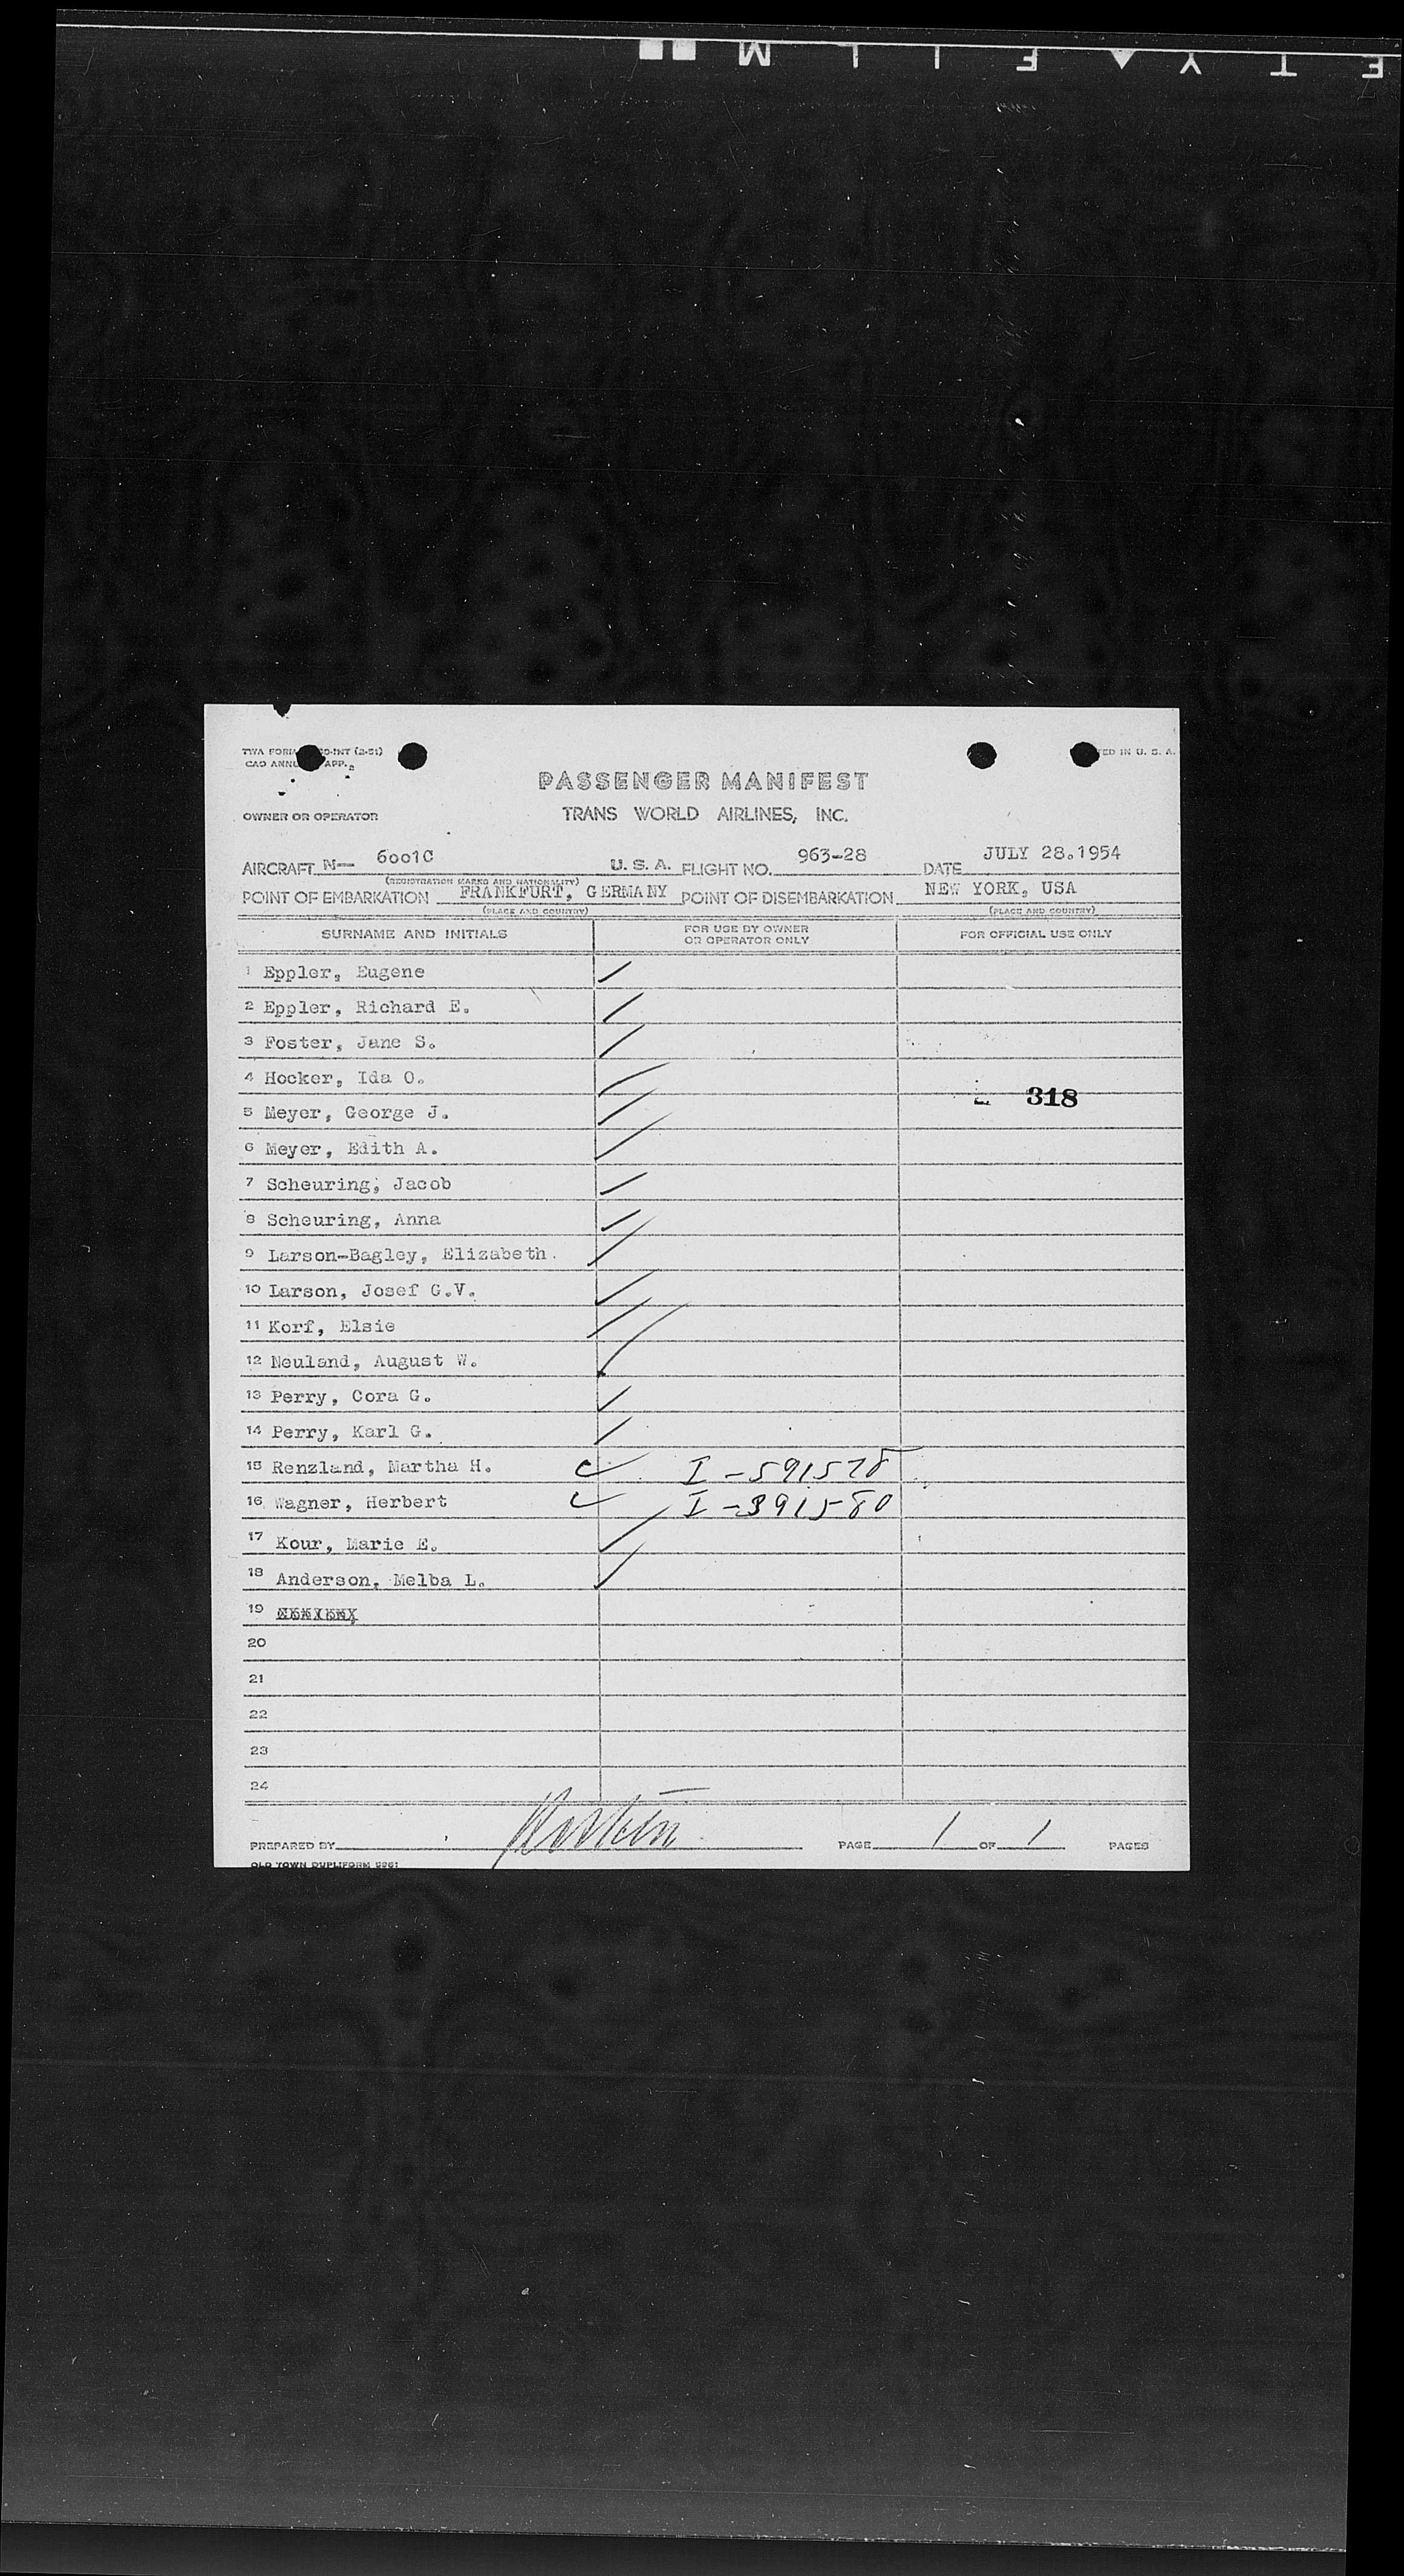 E T Y ▲ F I L M
TWA FORM
CAO ANN APP. 2
ED IN U. S. A.
PASSENGER MANIFEST
OWNER OR OPERATOR
TRANS WORLD AIRLINES, INC.
AIRCRAFT N— 6001C U. S. A. FLIGHT NO. 963-28 DATE JULY 28.1954
(REGISTRATION MARKS AND NATIONALITY)
POINT OF EMBARKATION FRANKFURT, GERMANY POINT OF DISEMBARKATION NEW YORK, USA
(PLACE AND COUNTRY) (PLACE AND COUNTRY)
SURNAME AND INITIALS FOR USE BY OWNER OR OPERATOR ONLY FOR OFFICIAL USE ONLY
1 Eppler, Eugene
2 Eppler, Richard E.
3 Foster, Jane S.
4 Hocker, Ida O.
318
5 Meyer, George J.
6 Meyer, Edith A.
7 Scheuring, Jacob
8 Scheuring, Anna
9 Larson-Bagley, Elizabeth.
10 Larson, Josef G.V.
11 Korf, Elsie
12 Neuland, August W.
13 Perry, Cora G.
14 Perry, Karl G.
15 Renzland, Martha H. I-591578
16 Wagner, Herbert I-391580
17 Kour, Marie E.
18 Anderson, Melba L.
19
20
21
22
23
24
PREPARED BY PAGE 1 OF 1 PAGES
OLD TOWN DUPLIFORM